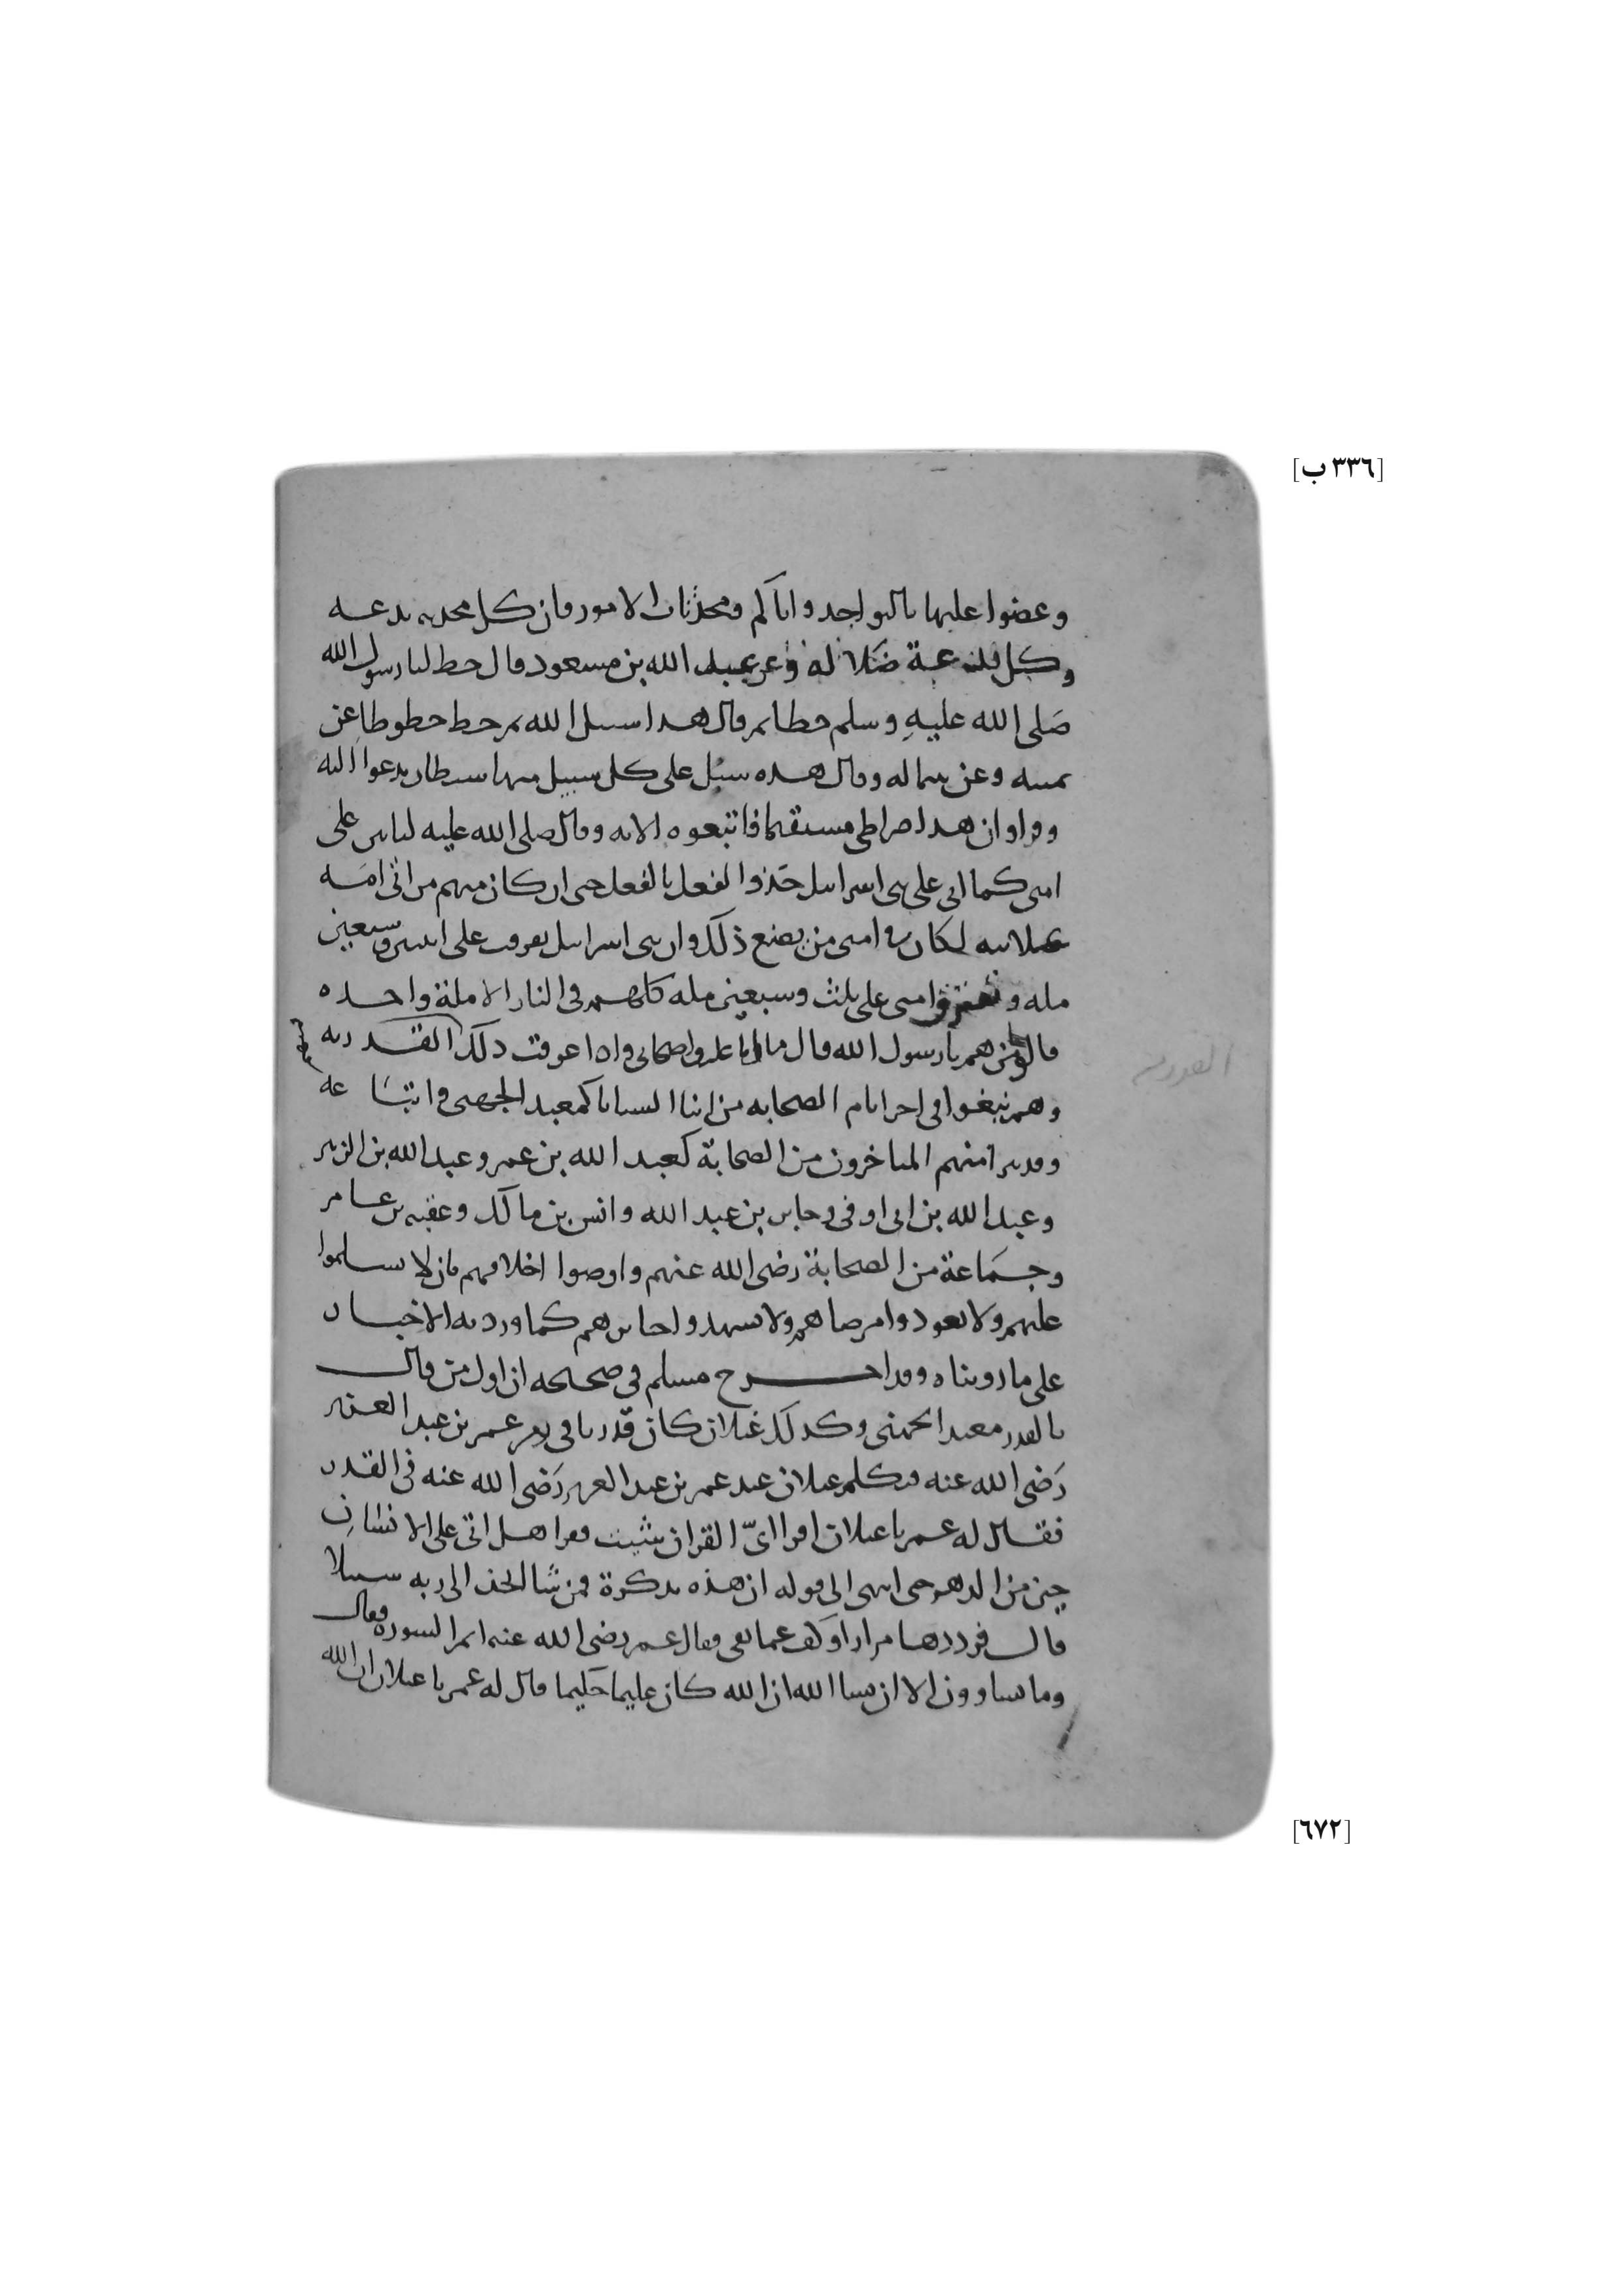 [٣٣٦ ب]
وعضوا عليها بالنواجد واياكم ومحدثات الامور فان كل محدثه بدعه
وكل بدعة ضلاله وعن عبد الله بن مسعود قال خط لنا رسول الله
صلى الله عليه وسلم خطا ثم قال هذا سبيل الله ثم خط خطوطا عن
يمينه وعن شماله وقال هذه سبل على كل سبيل منها شيطان يدعوا اليه
وقرا وان هذا صراطى مستقيما فاتبعوه الايه وقال صلى الله عليه لياتين على
امتى كما اتى على بنى اسرايل حذوا لفعل بالفعل حتى ان كان منهم من اتى امه
علانيه لكان فى امتى من يصنع ذلك وان بنى اسرايل تفرقت على اثنين وسبعين
مله وتفترق امتى على ثلث وسبعين مله كلهم فى النار الا ملة واحده
قالوا من هم يا رسول الله قال ما انا عليه واصحابى واذا عرفت ذلك القدريه
القدريه
وهم نبغوا فى اخر ايام الصحابه من ابنا السبايا كمعبد الجهنى واتباعه
وقد تبرا منهم المتاخرون من الصحابة كعبد الله بن عمر وعبد الله بن الزبير
وعبد الله بن ابى اوفى وجابر بن عبد الله وانس بن مالك وعقبه بن عامر
وجماعة من الصحابة رضى الله عنهم واوصوا اخلافهم بان لا يسلموا
عليهم ولا يعودوا مرضاهم ولا يشهدوا جنايزهم كما وردت به الاخبار
على ما رويناه وقد اخرج مسلم فى صحيحه ان اول من قال
بالقدر معبد الجهنى وكذلك غيلان كان قدريا فى زمن عمر بن عبد العزيز
رضى الله عنه فتكلم غيلان عند عمر بن عبد العزيز رضى الله عنه فى القدر
فقال له عمر يا غيلان اقرا اىّ القران شيت فقرا هل اتى على الانسان
حين من الدهر حتى انتهى الى قوله ان هذه تذكرة فمن شا اتخذ الى ربه سبيلا
قال فرددها مرارا وكف عما بقى فقال عمر رضى الله عنه اتم السوره فقال
وما تشاوون الا ان يشا الله ان الله كان عليما حكيما قال له عمر يا غيلان ان الله
[٦٧٢]